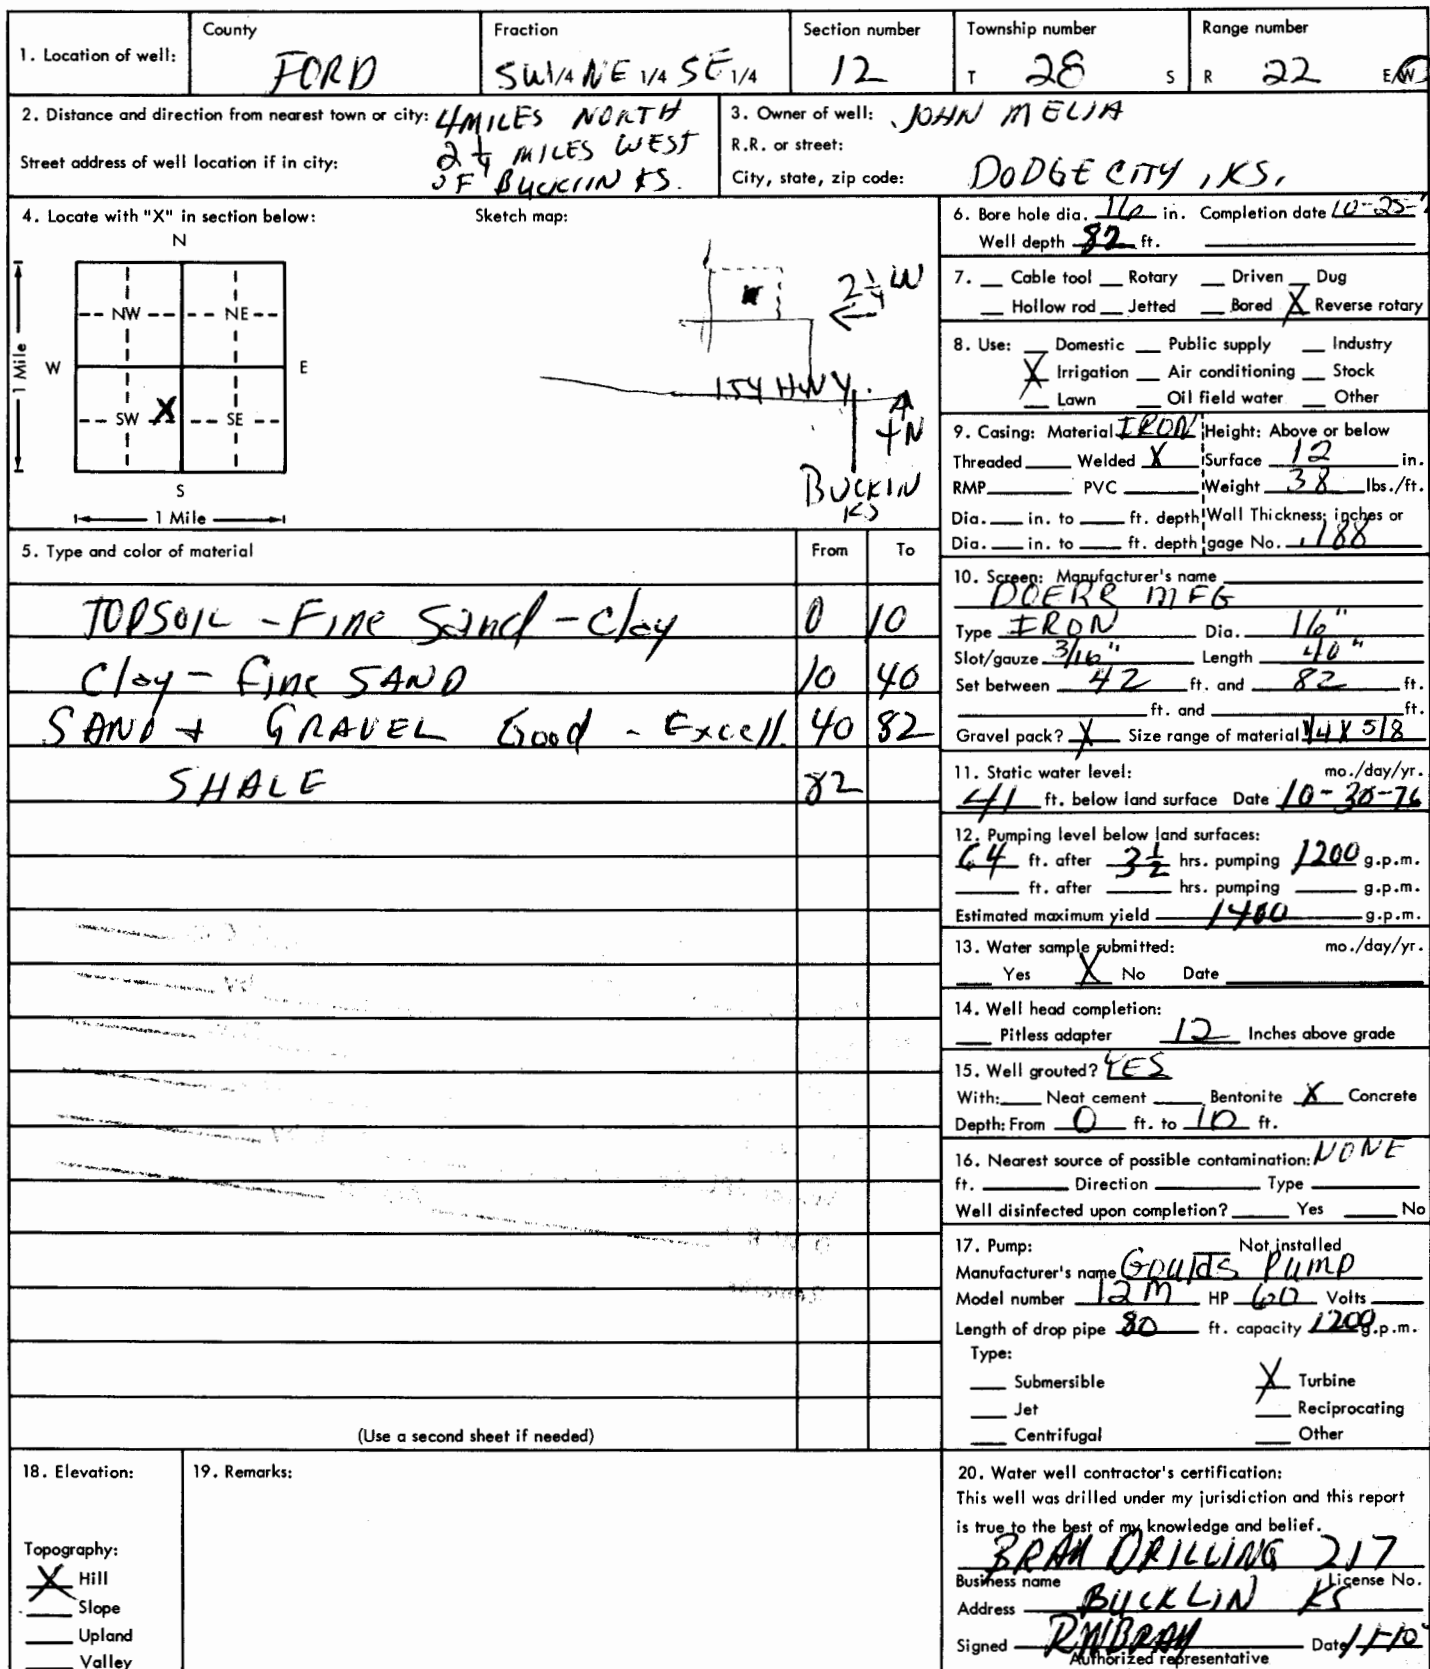 1. Location of well:
County
FORD
Fraction
SW 1/4 NE 1/4 SE 1/4
Section number
12
Township number
T 28 S
Range number
R 22 E/W
2. Distance and direction from nearest town or city: 4 MILES NORTH
2 1/4 MILES WEST
OF BUCKLIN KS.
Street address of well location if in city:
3. Owner of well: JOHN MELIA
R.R. or street:
City, state, zip code: DODGE CITY, KS,
4. Locate with "X" in section below:
N
NW NE
W E
SW X SE
S
1 Mile
1 Mile
Sketch map:
2 1/4 W
154 HWY.
4N
BUCKIN
KS
5. Type and color of material From To
TOPSOIL - Fine Sand - Clay 0 10
Clay - Fine SAND 10 40
SAND + GRAVEL Good - Excell. 40 82
SHALE 82
(Use a second sheet if needed)
6. Bore hole dia. 16 in. Completion date 10-25-
Well depth 82 ft.
7. Cable tool Rotary Driven Dug
Hollow rod Jetted Bored X Reverse rotary
8. Use: Domestic Public supply Industry
X Irrigation Air conditioning Stock
Lawn Oil field water Other
9. Casing: Material IRON Height: Above or below
Threaded Welded X Surface 12 in.
RMP PVC Weight 38 lbs./ft.
Dia. in. to ft. depth Wall Thickness: inches or
Dia. in. to ft. depth gage No. .188
10. Screen: Manufacturer's name
DOERR MFG
Type IRON Dia. 16"
Slot/gauze 3/16" Length 40"
Set between 42 ft. and 82 ft.
ft. and ft.
Gravel pack? X Size range of material 1/4 X 5/8
11. Static water level: mo./day/yr.
41 ft. below land surface Date 10-30-76
12. Pumping level below land surfaces:
64 ft. after 3 1/2 hrs. pumping 1200 g.p.m.
ft. after hrs. pumping g.p.m.
Estimated maximum yield 1400 g.p.m.
13. Water sample submitted: mo./day/yr.
Yes X No Date
14. Well head completion:
Pitless adapter 12 Inches above grade
15. Well grouted? YES
With: Neat cement Bentonite X Concrete
Depth: From 0 ft. to 10 ft.
16. Nearest source of possible contamination: NONE
ft. Direction Type
Well disinfected upon completion? Yes No
17. Pump: Not installed
Manufacturer's name Goulds Pump
Model number 12M HP 60 Volts
Length of drop pipe 80 ft. capacity 1200 g.p.m.
Type:
Submersible X Turbine
Jet Reciprocating
Centrifugal Other
18. Elevation:
Topography:
X Hill
Slope
Upland
Valley
19. Remarks:
20. Water well contractor's certification:
This well was drilled under my jurisdiction and this report
is true to the best of my knowledge and belief.
BRAY DRILLING 217
Business name License No.
Address BUCKLIN KS
Signed RWBRAY Date 11-10
Authorized representative